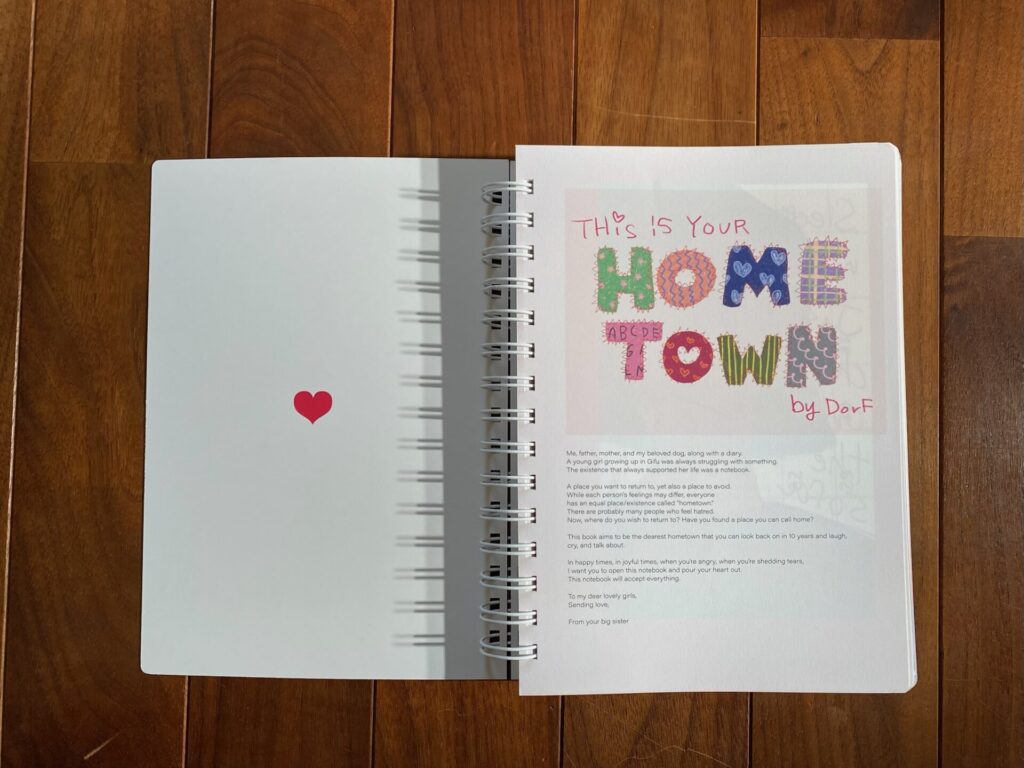 THiS iS YOUR
HOME
TOWN
ABCDE
by DorF
Me, father, mother, and my beloved dog, along with a diary.
A young girl growing up in Gifu was always struggling with something.
The existence that always supported her life was a notebook.
A place you want to return to, yet also a place to avoid.
While each person's feelings may differ, everyone
has an equal place/existence called "hometown"
There are probably many people who feel hatred.
Now, where do you wish to return to? Have you found a place you can call home?
This book aims to be the dearest hometown that you can look back on in 10 years and laugh,
cry, and talk about.
In happy times, in joyful times, when you're angry, when you're shedding tears,
I want you to open this notebook and pour your heart out.
This notebook will accept everything.
To my dear lovely girls,
Sending love,
From your big sister